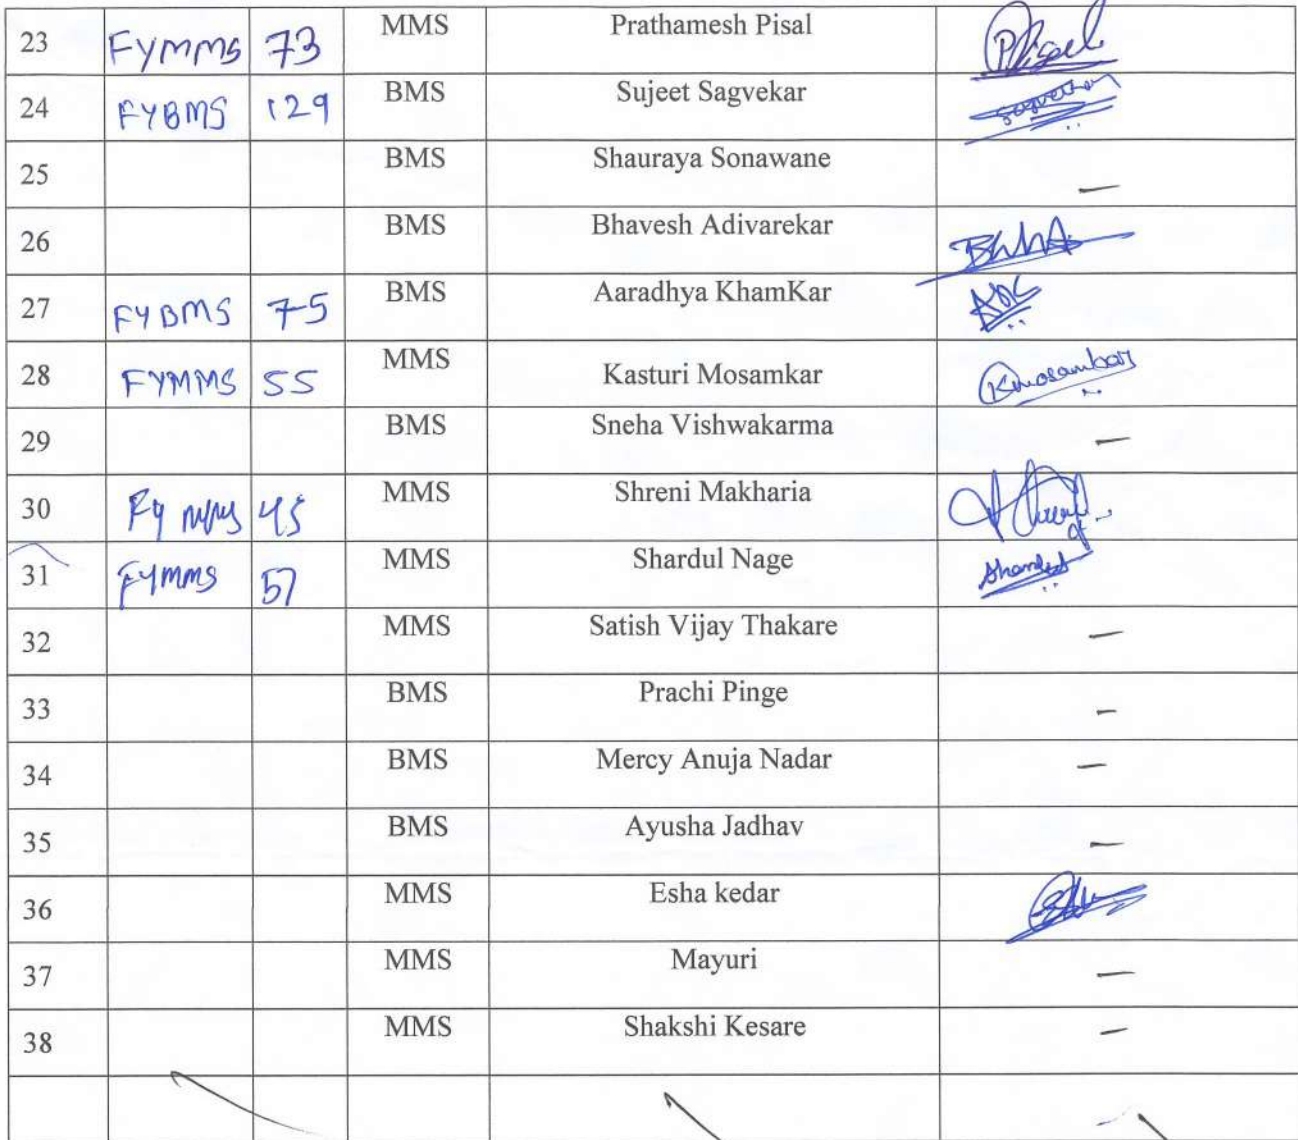 23 FYMMS 73 MMS Prathamesh Pisal PPisal
24 FYBMS 129 BMS Sujeet Sagvekar Sagvekar
25 BMS Shauraya Sonawane —
26 BMS Bhavesh Adivarekar
27 FYBMS 75 BMS Aaradhya KhamKar
28 FYMMS 55 MMS Kasturi Mosamkar Kmosamkar
29 BMS Sneha Vishwakarma —
30 Fy mms 45 MMS Shreni Makharia
31 FYMMS 57 MMS Shardul Nage Shardul
32 MMS Satish Vijay Thakare —
33 BMS Prachi Pinge —
34 BMS Mercy Anuja Nadar —
35 BMS Ayusha Jadhav —
36 MMS Esha kedar
37 MMS Mayuri —
38 MMS Shakshi Kesare —